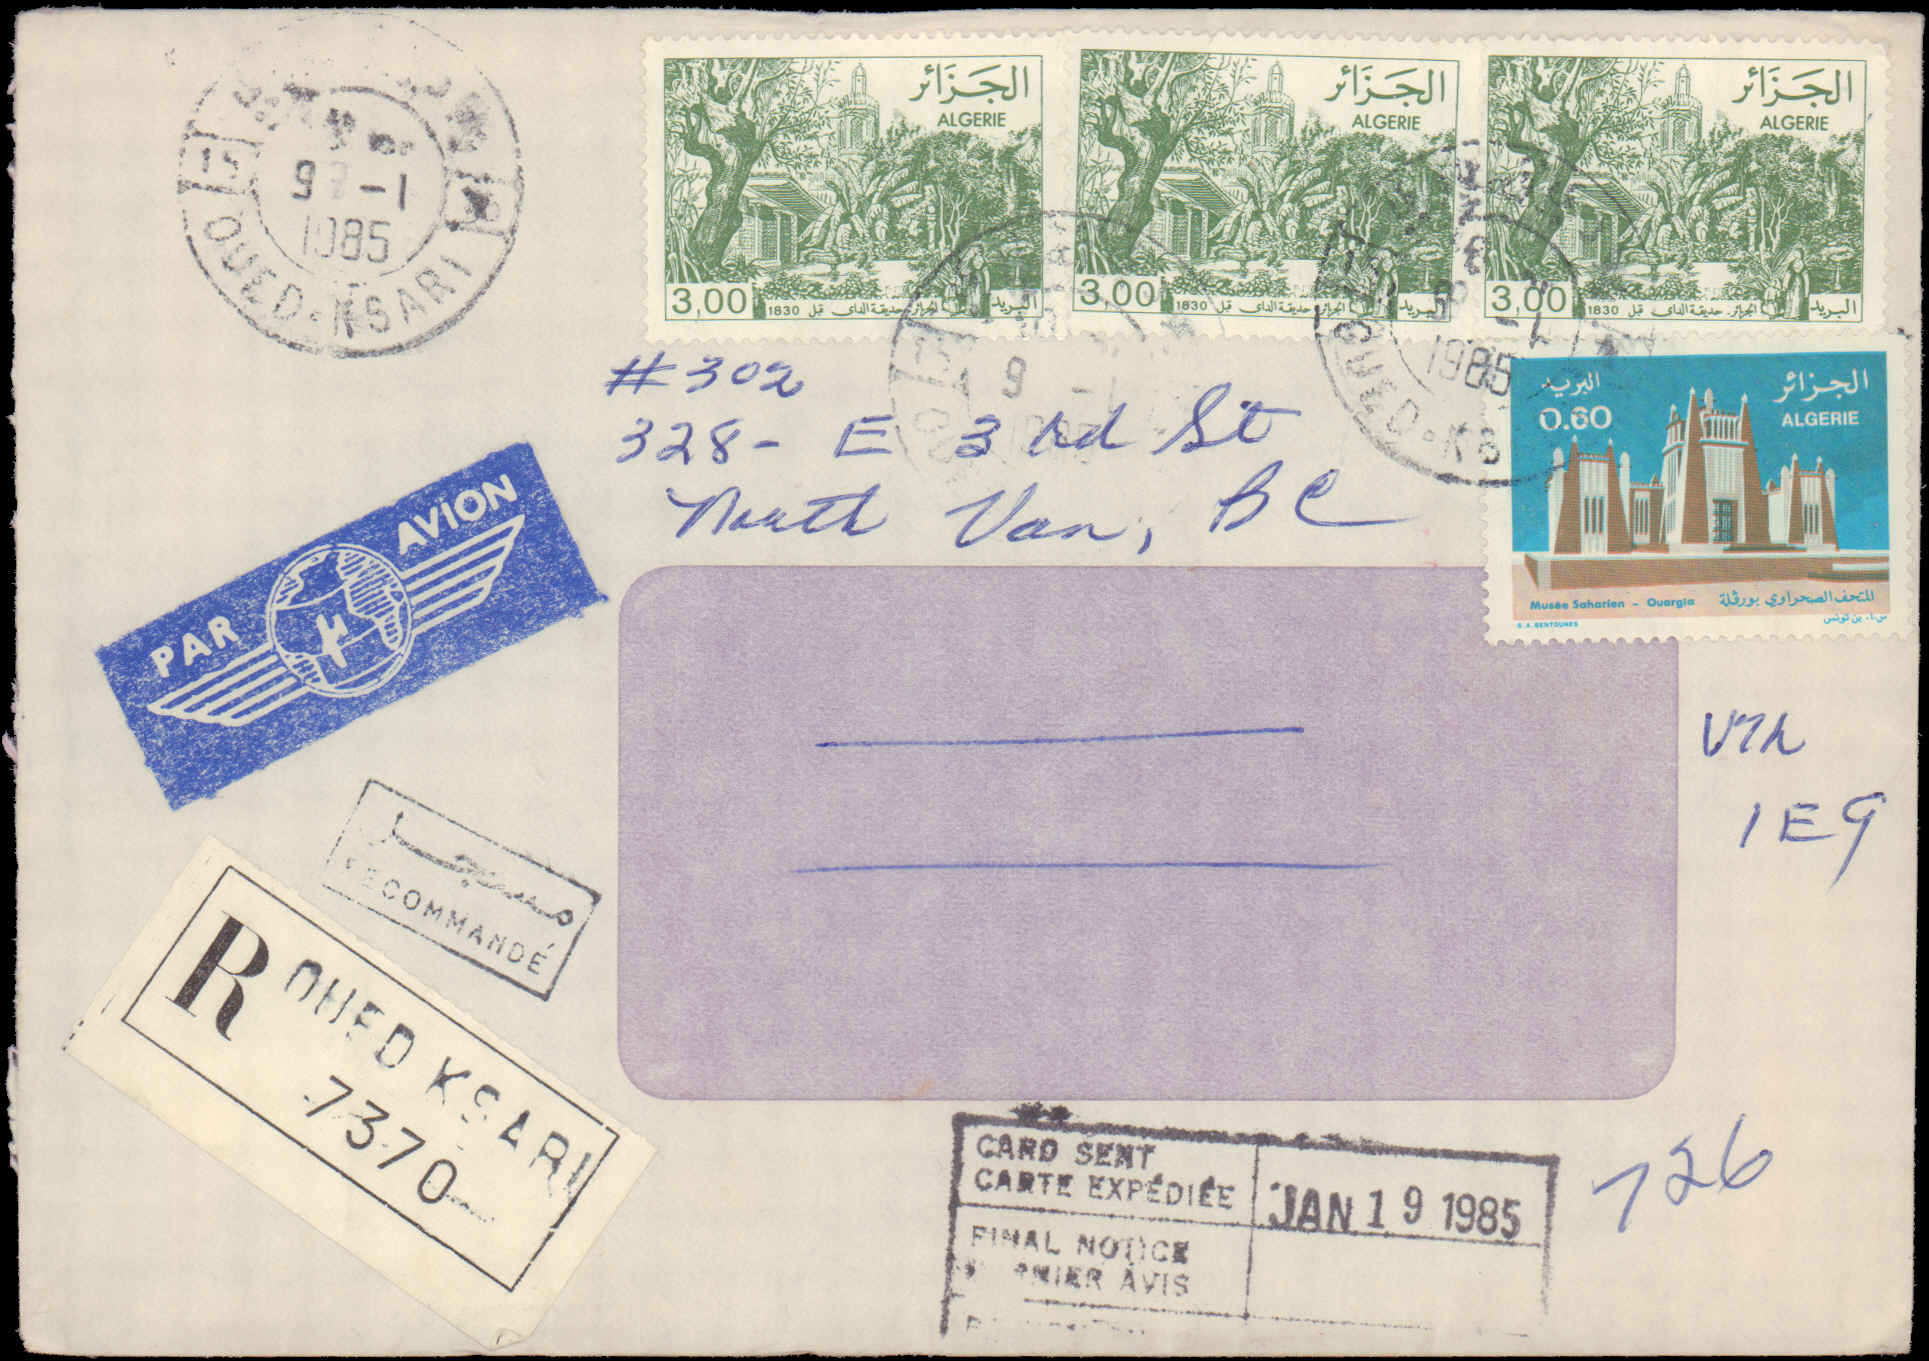 9 -1
1985
OUED-KSARI
الجزائر
ALGERIE
3,00
البريد
الجزائر حديقة الداي قبل 1830
الجزائر
ALGERIE
3,00
البريد
الجزائر حديقة الداي قبل 1830
الجزائر
ALGERIE
3,00
البريد
الجزائر حديقة الداي قبل 1830
9 -1
9 -1
1985
OUED-KS
البريد
0.60
الجزائر
ALGERIE
Musée Saharien - Ouargla
المتحف الصحراوي بورقلة
S.A. BENTOUNES
س.ا. بن تونس
#302
328- E 3rd St
North Van, BC
V7L
1E9
PAR AVION
مسجل
RECOMMANDÉ
R OUED KSARI
7370
CARD SENT
CARTE EXPÉDIÉE
JAN 19 1985
FINAL NOTICE
DERNIER AVIS
726